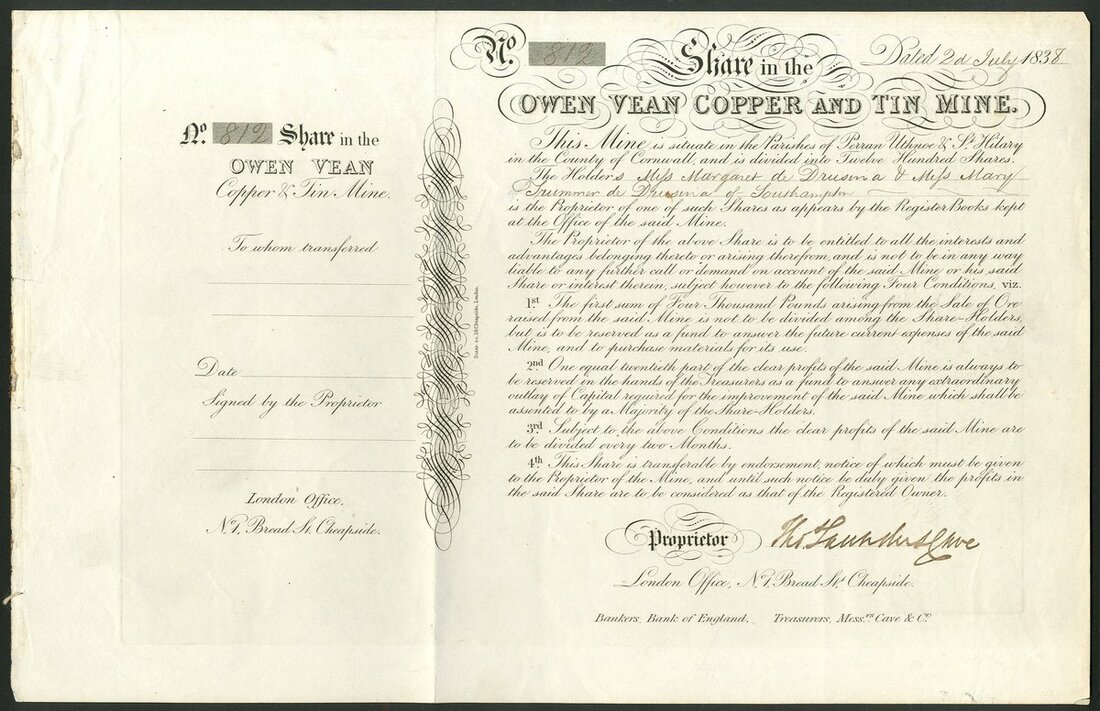 No. 812 Share in the
OWEN VEAN
Copper & Tin Mine.
To whom transferred
Date
Signed by the Proprietor
London Office,
No. 7, Bread St. Cheapside.
No. 812 Share in the Dated 2d July 1838
OWEN VEAN COPPER AND TIN MINE.
This Mine is situate in the Parishes of Perran Uthnoe & St. Hilary
in the County of Cornwall, and is divided into Twelve Hundred Shares.
The Holders Miss Margaret de Drusina & Miss Mary
Trummer de Drusina of Southampton
is the Proprietor of one of such Shares as appears by the Register Books kept
at the Office of the said Mine.
The Proprietor of the above Share is to be entitled to all the interests and
advantages belonging thereto or arising therefrom, and is not to be in any way
liable to any further call or demand on account of the said Mine or his said
Share or interest therein, subject however to the following Four Conditions, viz.
1st The first sum of Four Thousand Pounds arising from the Sale of Ore
raised from the said Mine is not to be divided among the Share-Holders,
but is to be reserved as a fund to answer the future current expenses of the said
Mine, and to purchase materials for its use.
2nd One equal twentieth part of the clear profits of the said Mine is always to
be reserved in the hands of the Treasurers as a fund to answer any extraordinary
outlay of Capital required for the improvement of the said Mine which shall be
assented to by a Majority of the Share-Holders.
3rd Subject to the above Conditions the clear profits of the said Mine are
to be divided every two Months.
4th This Share is transferable by endorsement, notice of which must be given
to the Proprietor of the Mine, and until such notice be duly given the profits in
the said Share are to be considered as that of the Registered Owner.
Proprietor Thos Saunders Cave
London Office, No. 7, Bread Str. Cheapside.
Bankers, Bank of England. Treasurers, Messrs. Cave & Co.